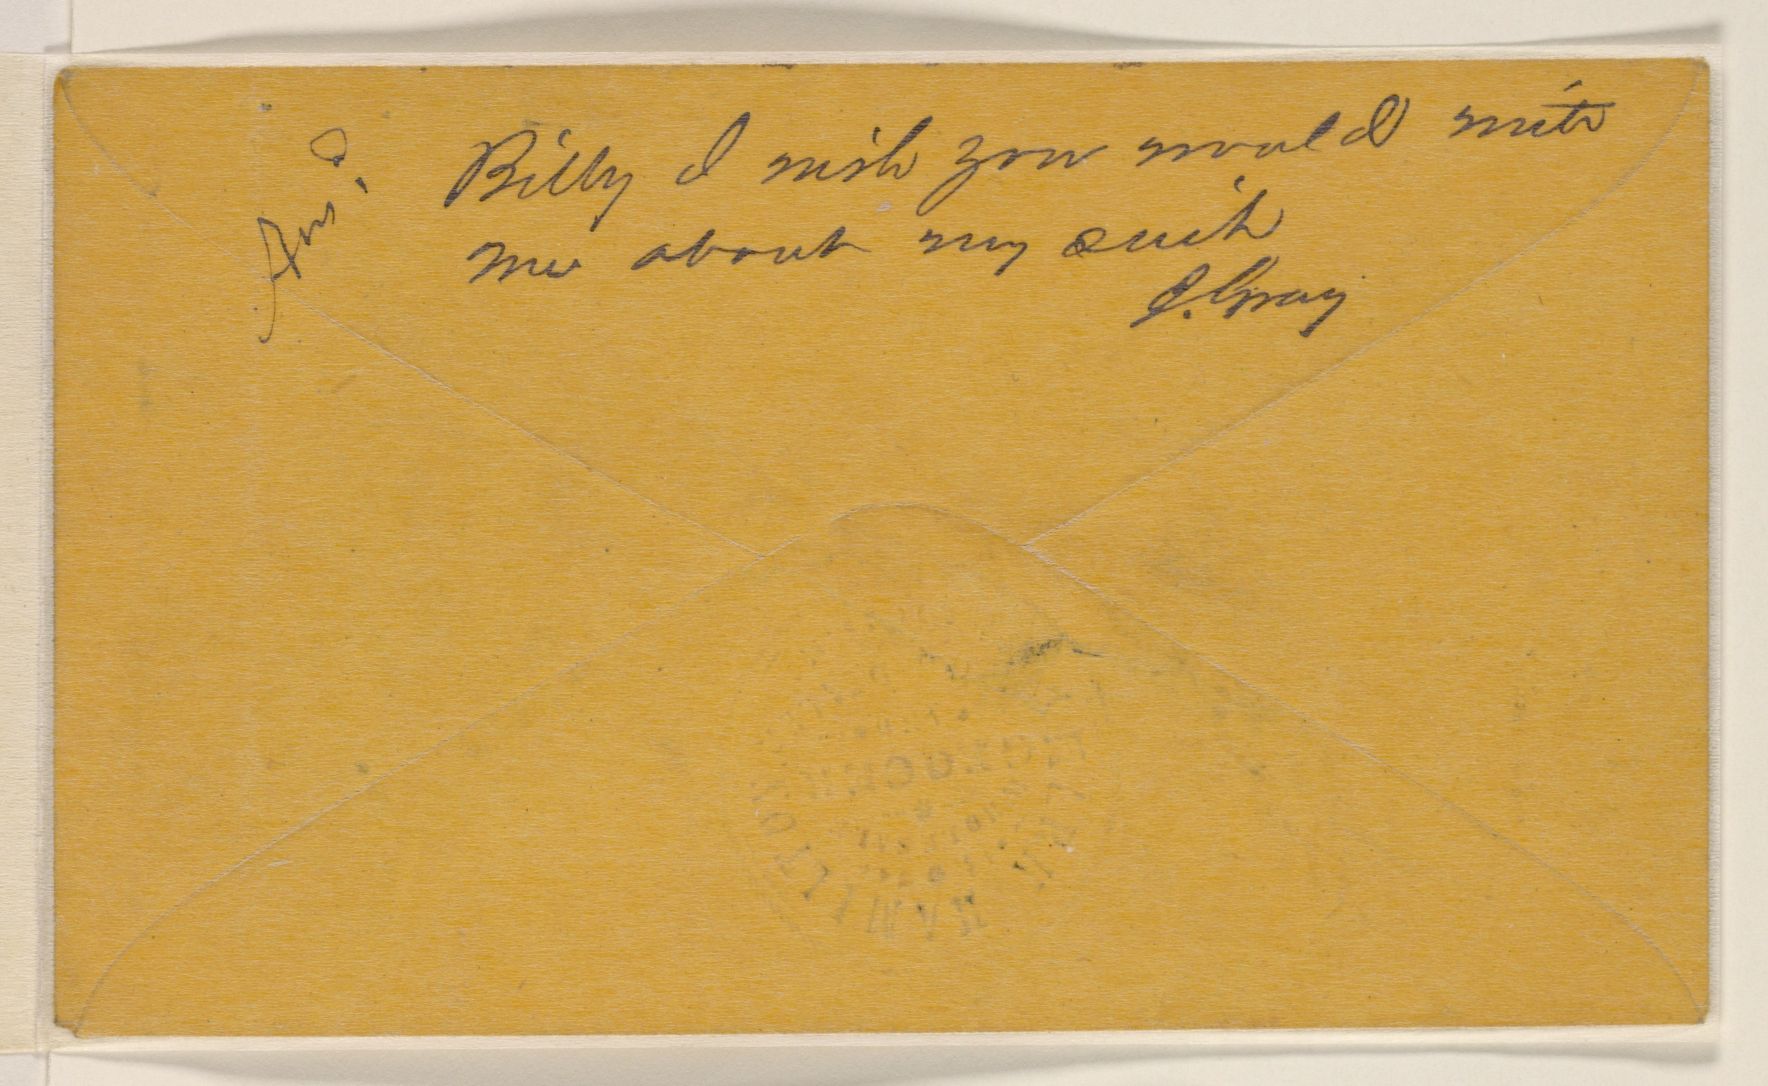 Ans'd
Billy I wish you would write
me about my suit
J. Gray